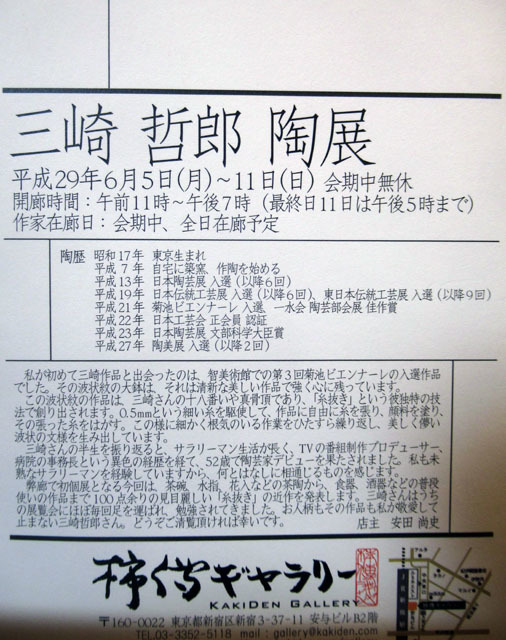 三崎 哲郎 陶展
平成29年6月5日(月)～11日(日) 会期中無休
開廊時間：午前11時～午後7時（最終日11日は午後5時まで）
作家在廊日：会期中、全日在廊予定
陶歴 昭和17年 東京生まれ
平成 7年 自宅に築窯、作陶を始める
平成13年 日本陶芸展 入選（以降6回）
平成19年 日本伝統工芸展 入選（以降6回）、東日本伝統工芸展 入選（以降9回）
平成21年 菊池ビエンナーレ 入選、一水会 陶芸部会展 佳作賞
平成22年 日本工芸会 正会員 認証
平成23年 日本陶芸展 文部科学大臣賞
平成27年 陶美展 入選（以降2回）
私が初めて三崎作品と出会ったのは、智美術館での第3回菊池ビエンナーレの入選作品
でした。その波状紋の大鉢は、それは清新な美しい作品で強く心に残っています。
この波状紋の作品は、三崎さんの十八番いや真骨頂であり、「糸抜き」という彼独特の技
法で創り出されます。0.5mmという細い糸を駆使して、作品に自由に糸を張り、顔料を塗り、
その張った糸をはがす。この様に細かく根気のいる作業をひたすら繰り返し、美しく儚い
波状の文様を生み出しています。
三崎さんの半生を振り返ると、サラリーマン生活が長く、TVの番組制作プロデューサー、
病院の事務長という異色の経歴を経て、52歳で陶芸家デビューを果たされました。私も未
熟なサラリーマンを経験していますから、何とはなしに相通じるものを感じます。
弊廊で初個展となる今回は、茶碗、水指、花入などの茶陶から、食器、酒器などの普段
使いの作品まで100点余りの見目麗しい「糸抜き」の近作を発表します。三崎さんはうち
の展覧会にほぼ毎回足を運ばれ、勉強されてきました。お人柄もその作品も私が敬愛して
止まない三崎哲郎さん。どうぞご清覧頂ければ幸いです。 店主 安田 尚史
柿傳ギャラリー
KAKIDEN GALLERY
〒160-0022 東京都新宿区新宿3-37-11 安与ビルB2階
TEL.03-3352-5118 mail : gallery@kakiden.com